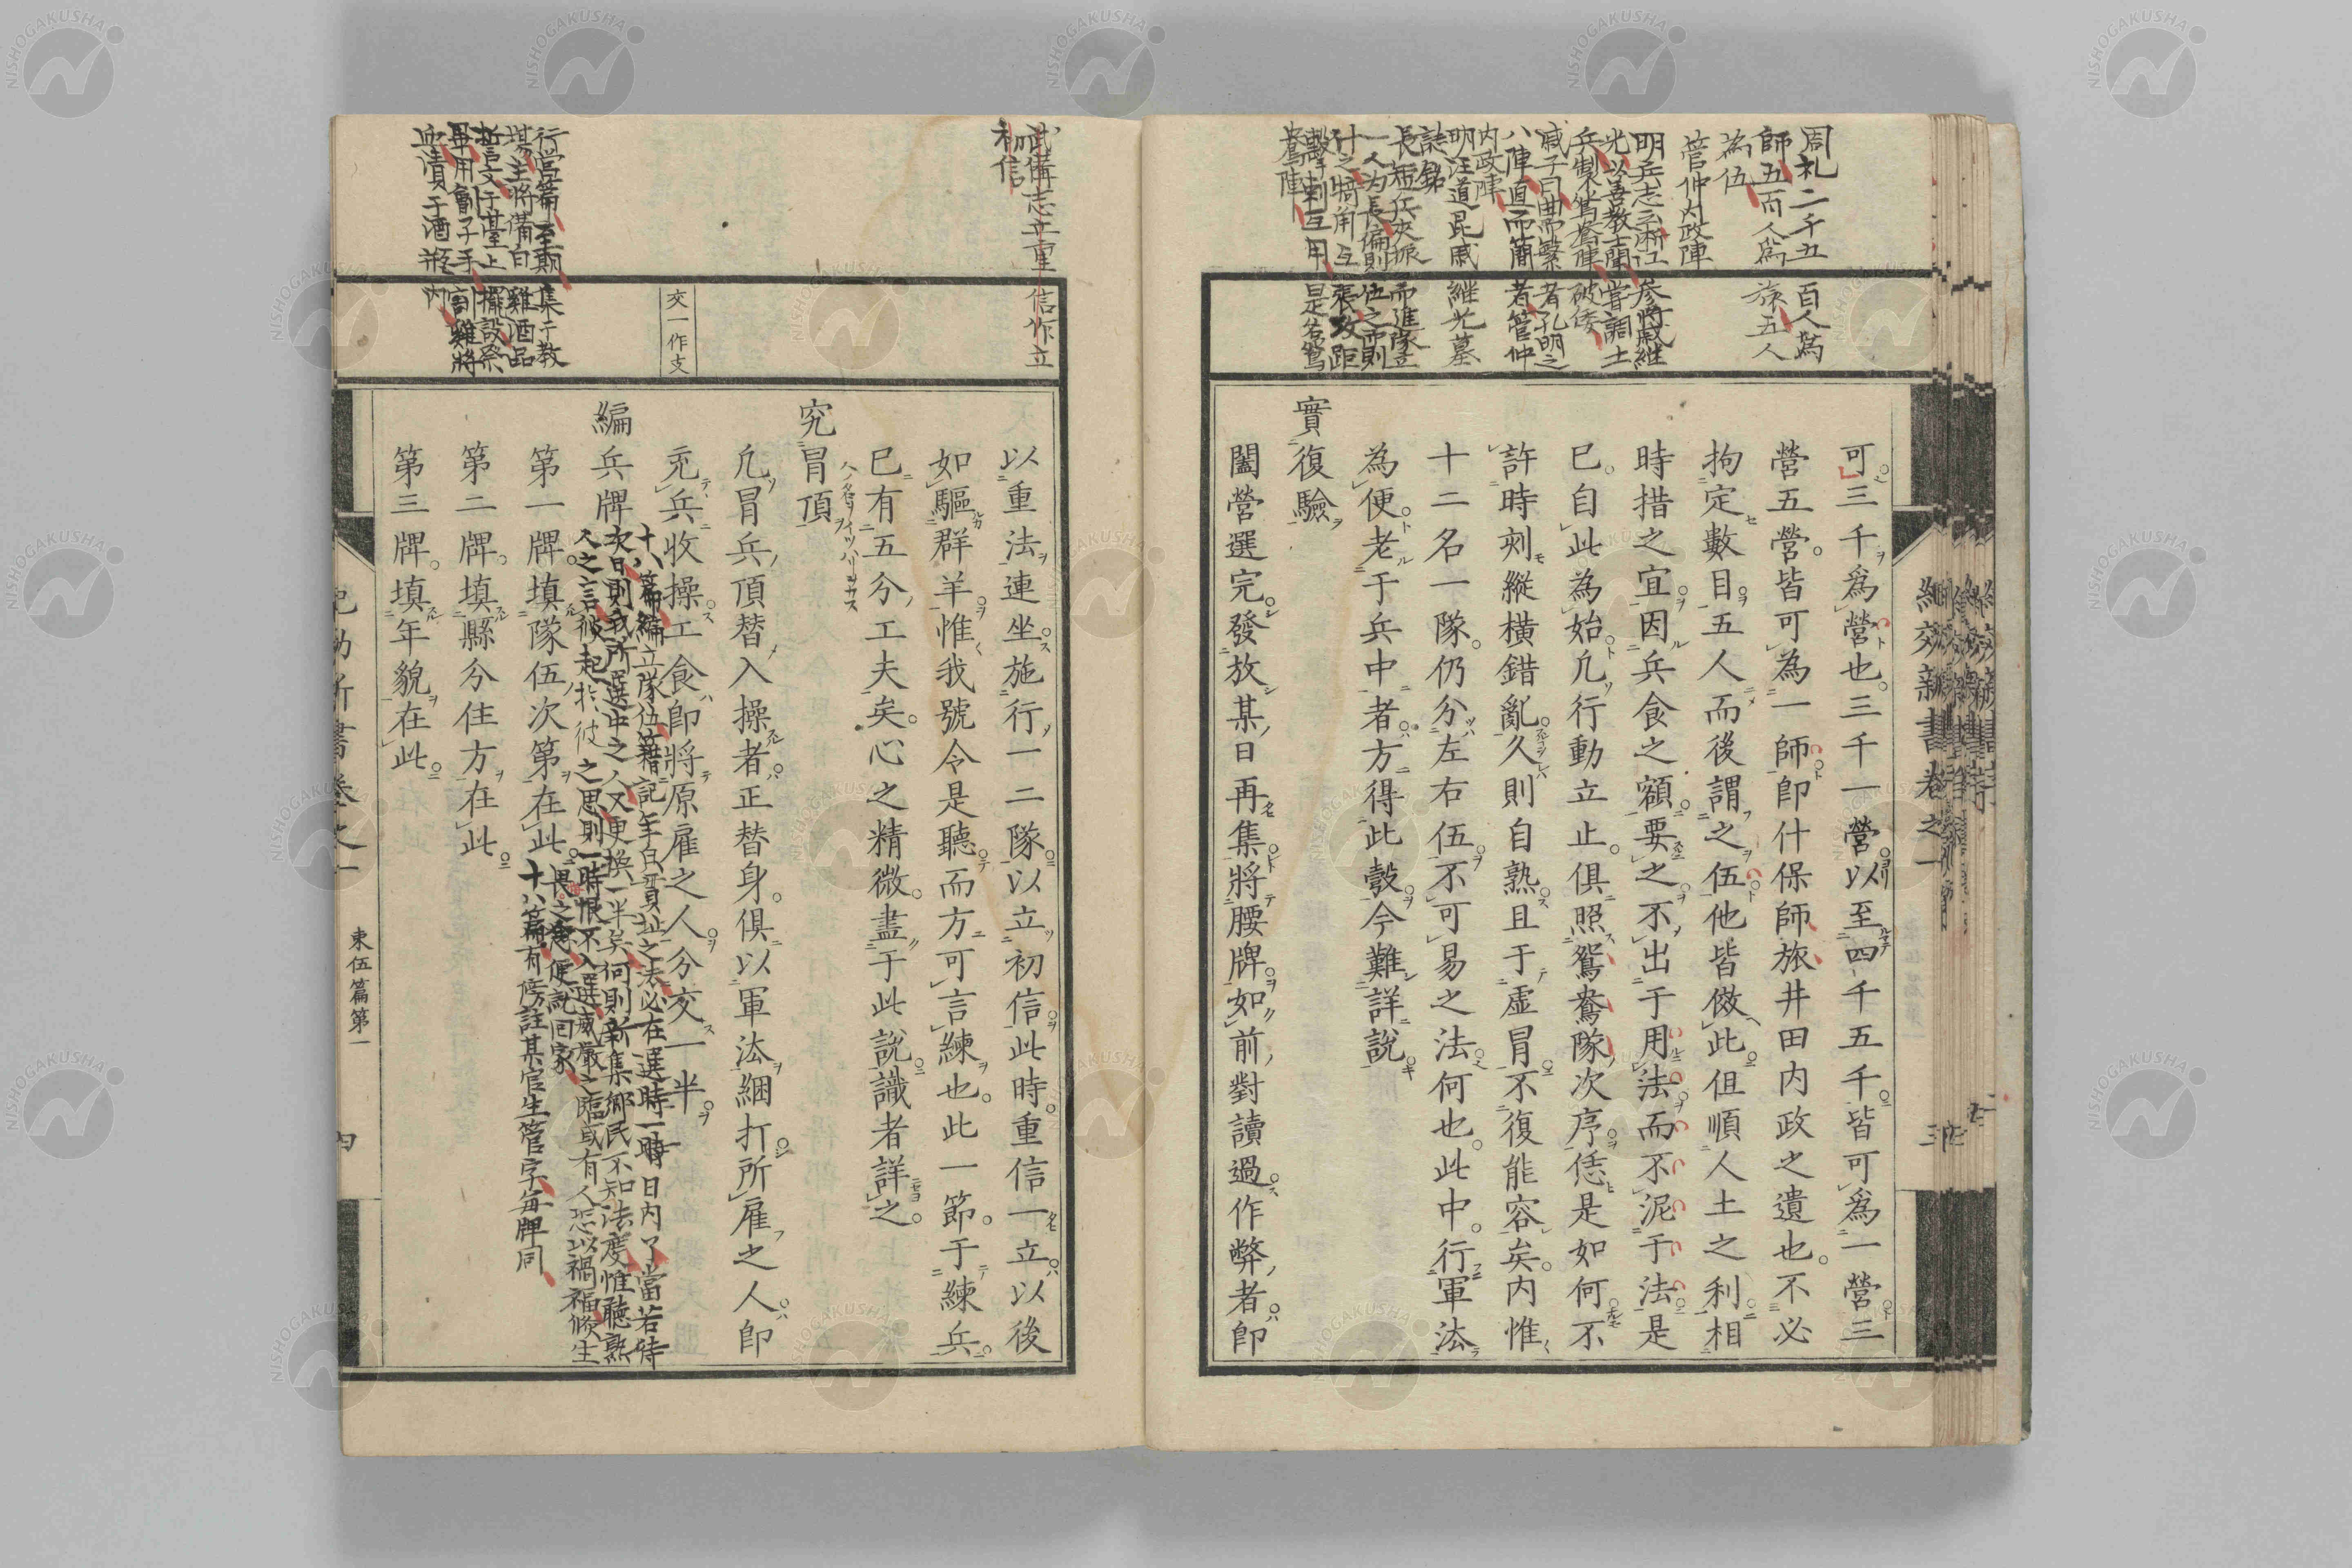 周礼二千五百人為
師五百人為旅五人
為伍
管仲内政陣
明兵志云浙江参將戚継
光以善教士聞嘗調土
兵製鴛鴦陣破倭
戚子曰曲而繁者孔明之
八陣直而簡者管仲
内政陣
明汪道昆戚継光墓
誌銘
長短兵夾振而進隊立
一人为長偏則伍之两則
什之犄角互張攻距
擊刺互用是名鴛
鴦陣
可三千為營也三千一營以至四千五千皆可為一營三
營五營皆可為一師即什保師旅井田内政之遺也不必
拘定數目五人而後謂之伍他皆倣此但順人土之利相
時措之宜因兵食之額要之不出于用法而不泥于法是
已自此為始凡行動立止俱照鴛鴦隊次序恁是如何不
許時刻縱橫錯亂久則自熟且于虚冒不復能容矣内惟
十二名一隊仍分左右伍不可易之法何也此中行軍法
為便老于兵中者方得此彀今難詳說
實復驗
闔營選完發放某日再集將腰牌如前對讀過作弊者即
紀効新書巻之一
三
武備志立重信作立
初信
交一作支
行營篇至期集于教
場主將備白雞酒品
誓文于臺上擺設祭
畢用劊子手割雞將
血漬于酒瓶内
以重法連坐施行一二隊以立初信此時重信一立以後
如驅群羊惟我號令是聽而方可言練也此一節于練兵
已有五分工夫矣心之精微盡于此說識者詳之
究冒頂
凡冒兵頂替入操者正替身俱以軍法綑打所雇之人即
充兵收操工食即將原雇之人分交一半
編兵牌
十八篇編立隊伍籍記年貌貫址之法必在選時一時日内了當若待
次日則我所選中之人又更換一半矣何則新集鄉民不知法度惟聽熟
人之言彼起於彼之思則一時恨不入選威嚴之臨或有人恐以禍福倐生
畏之意便訛回家
第一牌填隊伍次第在此
十八篇有傍註某官生管字每牌同
第二牌填縣分住方在此
第三牌填年貌在此
紀効新書巻之一
束伍篇第一
四
NISHOGAKUSHA